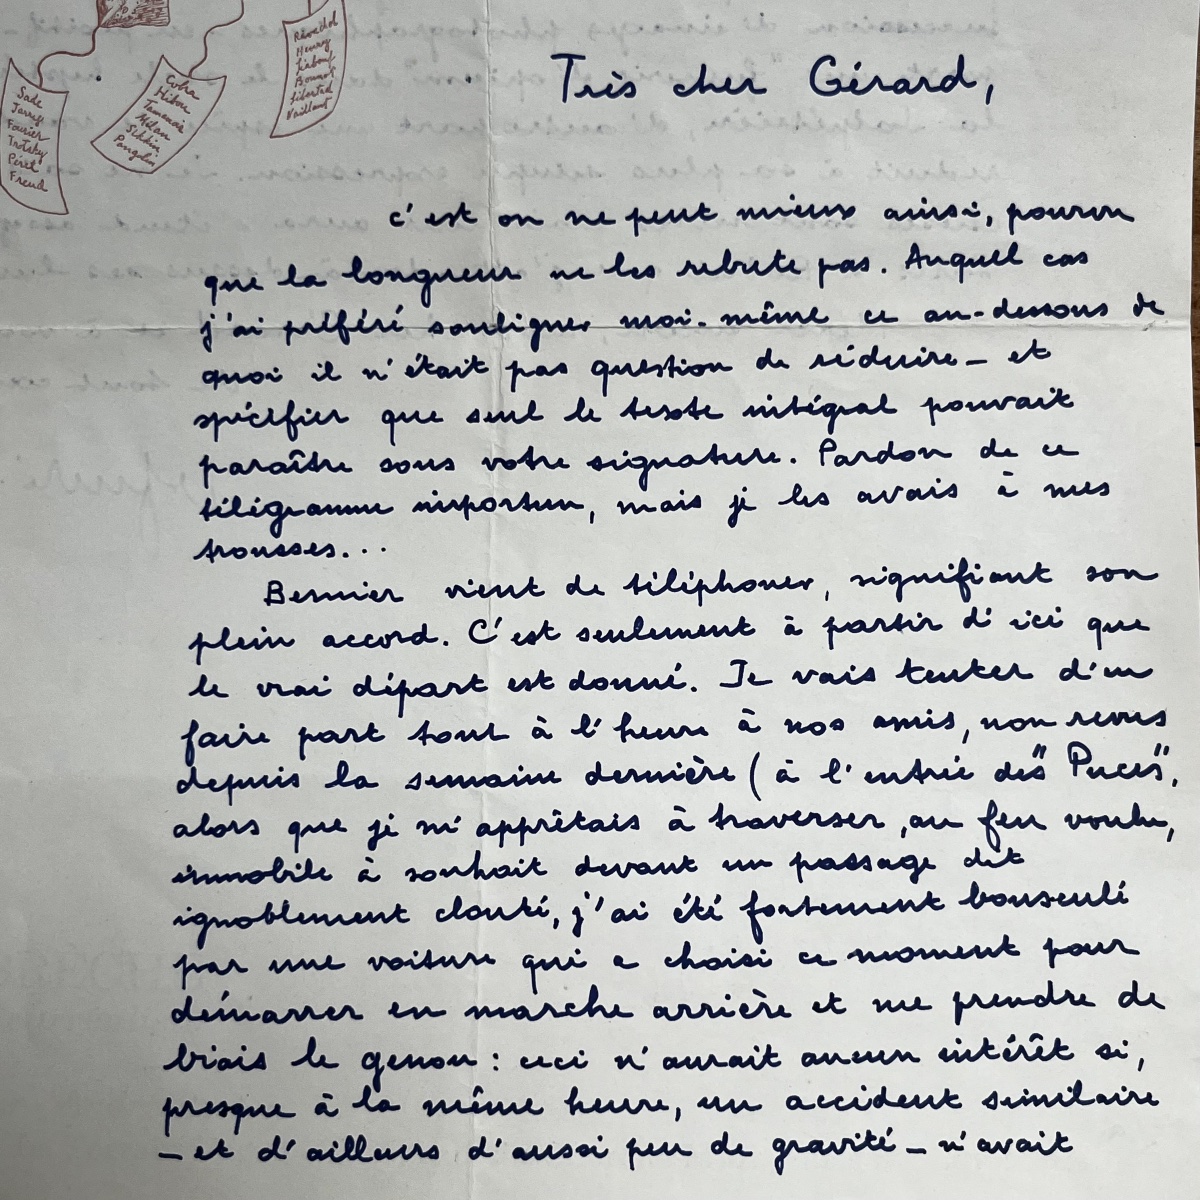 Sade
Jarry
Fourier
Trotsky
Péret
Freud
Cobra
Hibou
Tamanoir
Milan
Pangolin
Henry
Bonnot
Libertad
Vaillant
Très cher Gérard,
c'est on ne peut mieux ainsi, pourvu
que la longueur ne les rebute pas. Auquel cas
j'ai préféré souligner moi-même ce au-dessous de
quoi il n'était pas question de réduire – et
spécifier que seul le texte intégral pouvait
paraître sous votre signature. Pardon de ce
télégramme importun, mais je les avais à mes
trousses...
Bernier vient de téléphoner, signifiant son
plein accord. C'est seulement à partir d'ici que
le vrai départ est donné. Je vais tenter d'en
faire part tout à l'heure à nos amis, non revus
depuis la semaine dernière (à l'entrée des "Puces",
alors que je m'apprêtais à traverser, au feu voulu,
immobile à souhait devant un passage dit
ignoblement clouté, j'ai été fortement bousculé
par une voiture qui a choisi ce moment pour
démarrer en marche arrière et me prendre de
biais le genou : ceci n'aurait aucun intérêt si,
presque à la même heure, un accident similaire
– et d'ailleurs d'aussi peu de gravité – n'avait